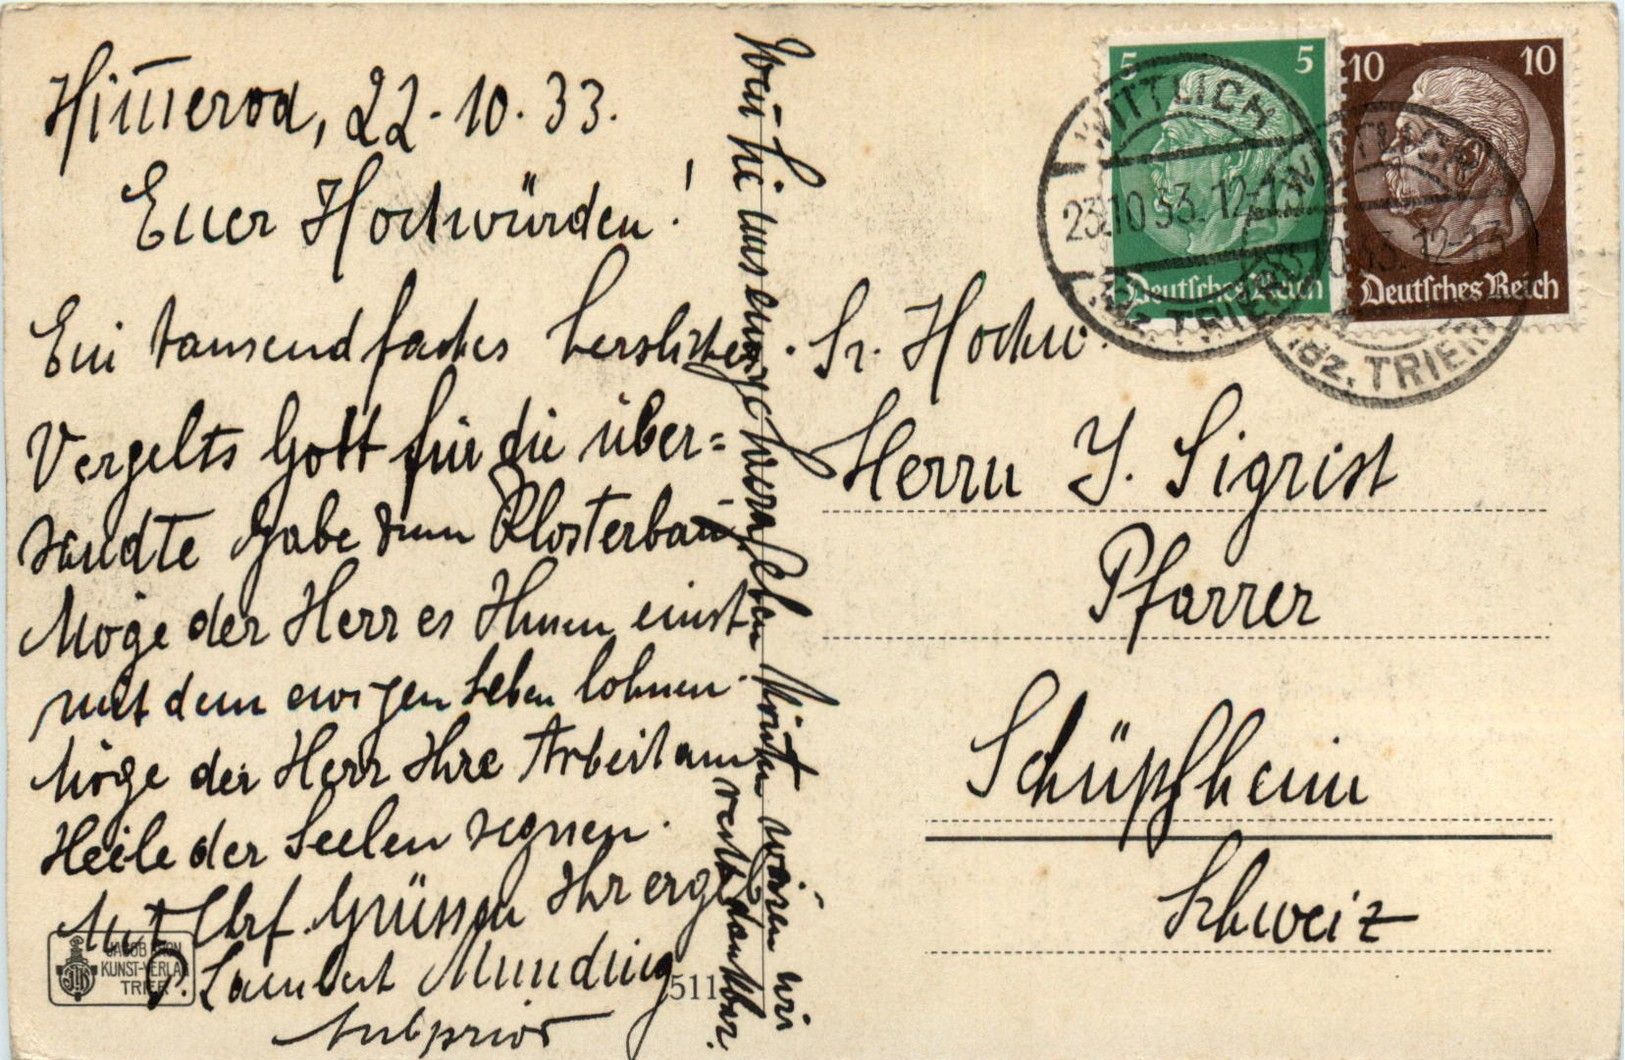 Himmerod, 22.10.33.
Euer Hochwürden!
Ein tausendfaches herzliches
Vergelts Gott für die über=
sandte Gabe zum Klosterbau.
Möge der Herr es Ihnen einst
mit dem ewigen Leben lohnen.
Möge der Herr Ihre Arbeit am
Heile der Seelen segnen.
Mit Ehrf. Grüssen Ihr erg.
P. Lambert Munding
Subprior
Wenn Sie uns einige
könnten wären wir
recht dankbar.
Sr. Hochw.
Herrn J. Sigrist
Pfarrer
Schüpfheim
Schweiz
5 5
Deutsches Reich
10 10
Deutsches Reich
WITTLICH
23.10.33.12-13
Bz. TRIER
WITTLICH
23.10.33.12-13
Bz. TRIER
JACOB
KUNST-VERLAG
TRIER
511